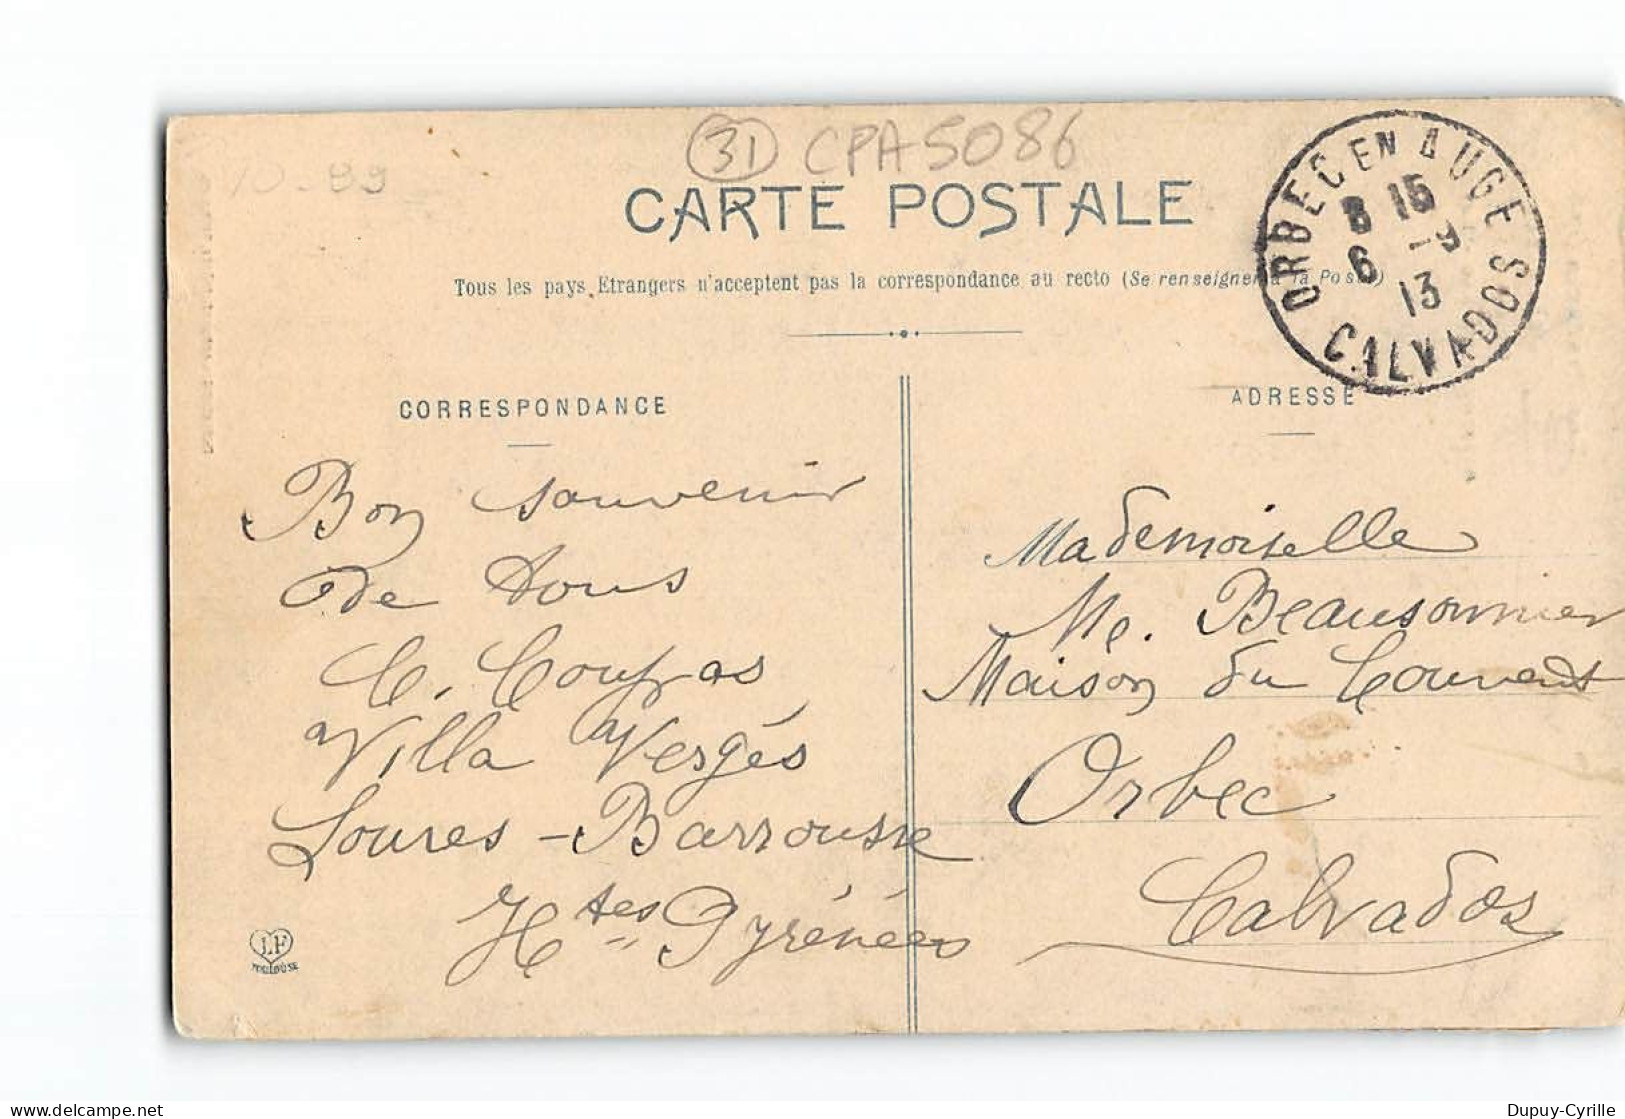 31 CPA 5086
10-89
CARTE POSTALE
Tous les pays Etrangers n'acceptent pas la correspondance au recto (Se renseigner à la Poste)
ORBEC EN AUGE
8 15
6 -9
13
CALVADOS
CORRESPONDANCE
Bon souvenir
de tous
C. Coupas
Villa Vergés
Loures-Barrousse
Htes Pyrénées
LF
TOULOUSE
ADRESSE
Mademoiselle
Me. Beausonnier
Maison du Couvent
Orbec
Calvados
delcampe.net
Dupuy-Cyrille